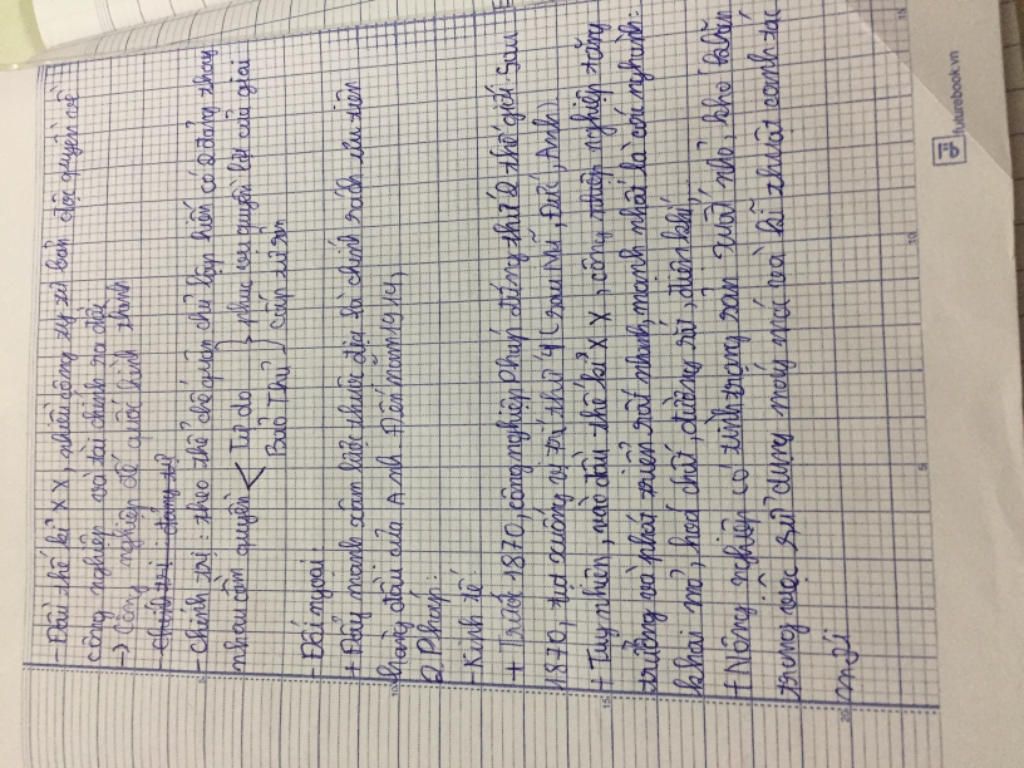 - Đầu thế kỉ XX, nhiều công ty tư bản độc quyền về
công nghiệp và tài chính ra đời
-> Công nghiệp đế quốc hình thành
- Chính trị: đảng
- Chính trị: theo thể chế quân chủ lập hiến có 2 đảng thay
nhau cầm quyền < Tự do } phục vụ quyền lợi của giai
Bảo Thủ } cấp tư sản
- Đối ngoại:
+ Đẩy mạnh xâm lược thuộc địa là chính sách ưu tiên
hàng đầu của Anh Đến năm 1914,
2. Pháp:
- Kinh tế:
+ Trước 1870, công nghiệp Pháp đứng thứ 2 thế giới Sau
1870, tụt xuống vị trí thứ 4 (sau Mĩ, Đức, Anh)
+ Tuy nhiên, vào đầu thế kỉ XX, công nghiệp tăng
trưởng và phát triển rất nhanh, mạnh nhất là các nghành:
khai mỏ, hoá chất, đường sắt, điện khí,...
+ Nông nghiệp có tình trạng sản xuất nhỏ, khó khăn
trong việc sử dụng máy móc và kĩ thuật canh tác
mới
5
10
15
5
10
15
20
futurebook.vn